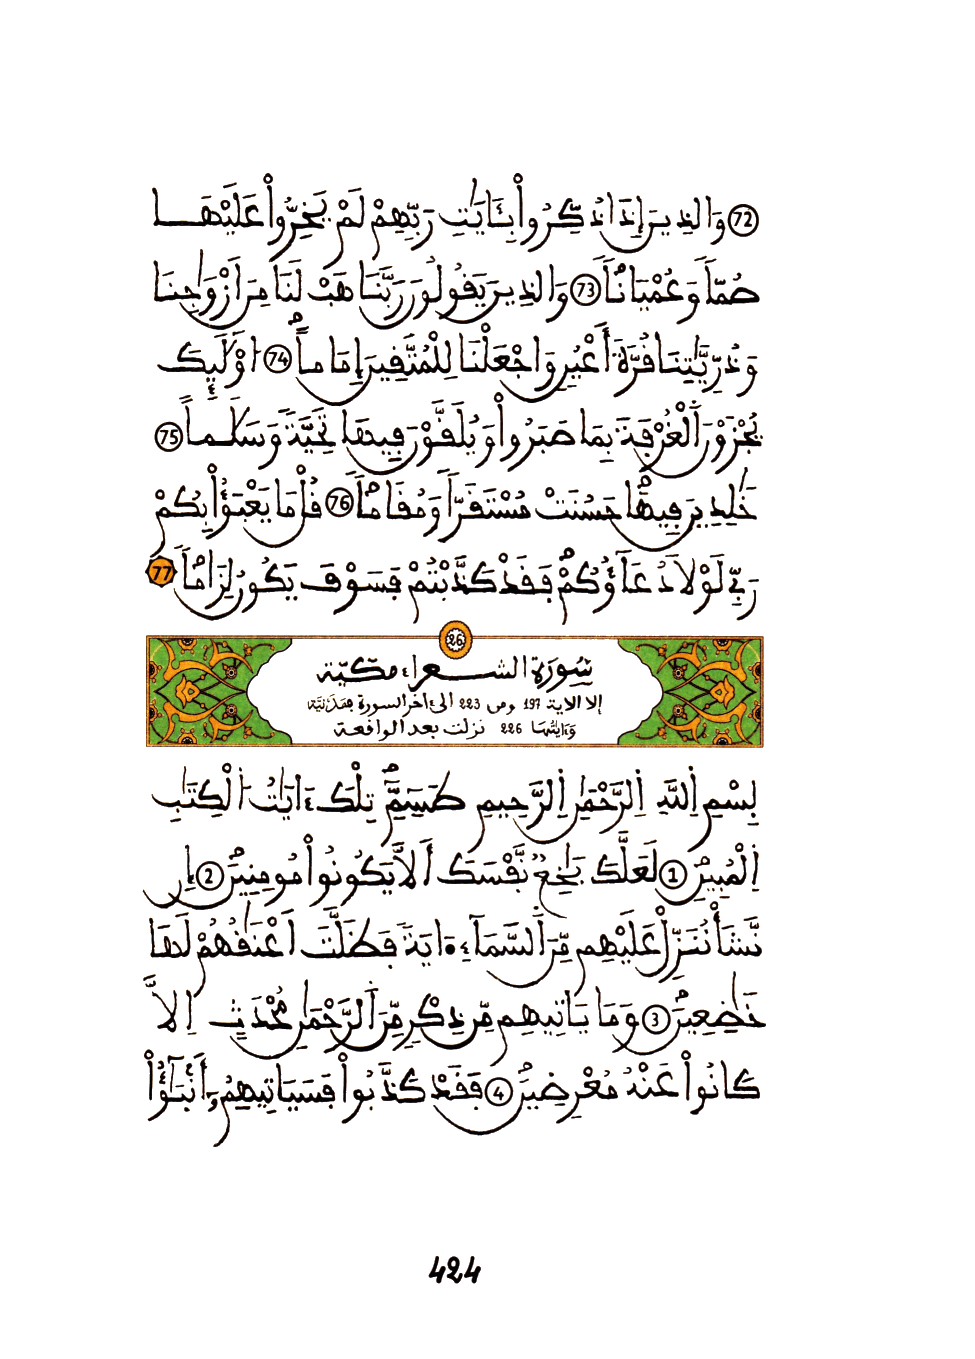 (72) وَالذِينَ إِذَا ذُكِّرُواْ بِـَٔايَٰتِ رَبِّهِمْ لَمْ يَخِرُّواْ عَلَيْهَا
صُمّاٗ وَعُمْيَاناٗ (73) وَالذِينَ يَقُولُونَ رَبَّنَا هَبْ لَنَا مِنَ اَزْوَٰجِنَا
وَذُرِّيَّٰتِنَا قُرَّةَ أَعْيُنٖ وَاجْعَلْنَا لِلْمُتَّقِينَ إِمَاماًۖ (74) اوْلَٰٓئِكَ
يُجْزَوْنَ اَلْغُرْفَةَ بِمَا صَبَرُواْ وَيُلَقَّوْنَ فِيهَا تَحِيَّةٗ وَسَلَٰماً (75)
خَٰلِدِينَ فِيهَاۖ حَسُنَتْ مُسْتَقَرّاٗ وَمُقَاماٗۖ (76) قُلْ مَا يَعْبَؤُاْ بِكُمْ
رَبِّي لَوْلَا دُعَآؤُكُمْۖ فَقَدْ كَذَّبْتُمْ فَسَوْفَ يَكُونُ لِزَاماٗۖ (77)
26
سُورَة الشعراء مكّيّة
إلا الاية 197 ومن 223 الى ءاخر السورة فمدَنيَّة
وَءَايَٰتُهَا 226 نزلت بعد الواقعة
بِسْمِ اِللَّهِ اِلرَّحْمَٰنِ اِلرَّحِيمِ طَسِٓمِّٓۖ تِلْكَ ءَايَٰتُ اَلْكِتَٰبِ
اِلْمُبِينِۖ (1) لَعَلَّكَ بَٰخِعٞ نَّفْسَكَ أَلَّا يَكُونُواْ مُومِنِينَۖ (2) إِن
نَّشَأْ نُنَزِّلْ عَلَيْهِم مِّنَ اَلسَّمَآءِ ءَايَةٗ فَظَلَّتَ اَعْنَٰقُهُمْ لَهَا
خَٰضِعِينَۖ (3) وَمَا يَاتِيهِم مِّن ذِكْرٖ مِّنَ اَلرَّحْمَٰنِ مُحْدَثٍ اِلَّا
كَانُواْ عَنْهُ مُعْرِضِينَۖ (4) فَقَدْ كَذَّبُواْ فَسَيَاتِيهِمُۥٓ أَنۢبَٰٓؤُاْ
424